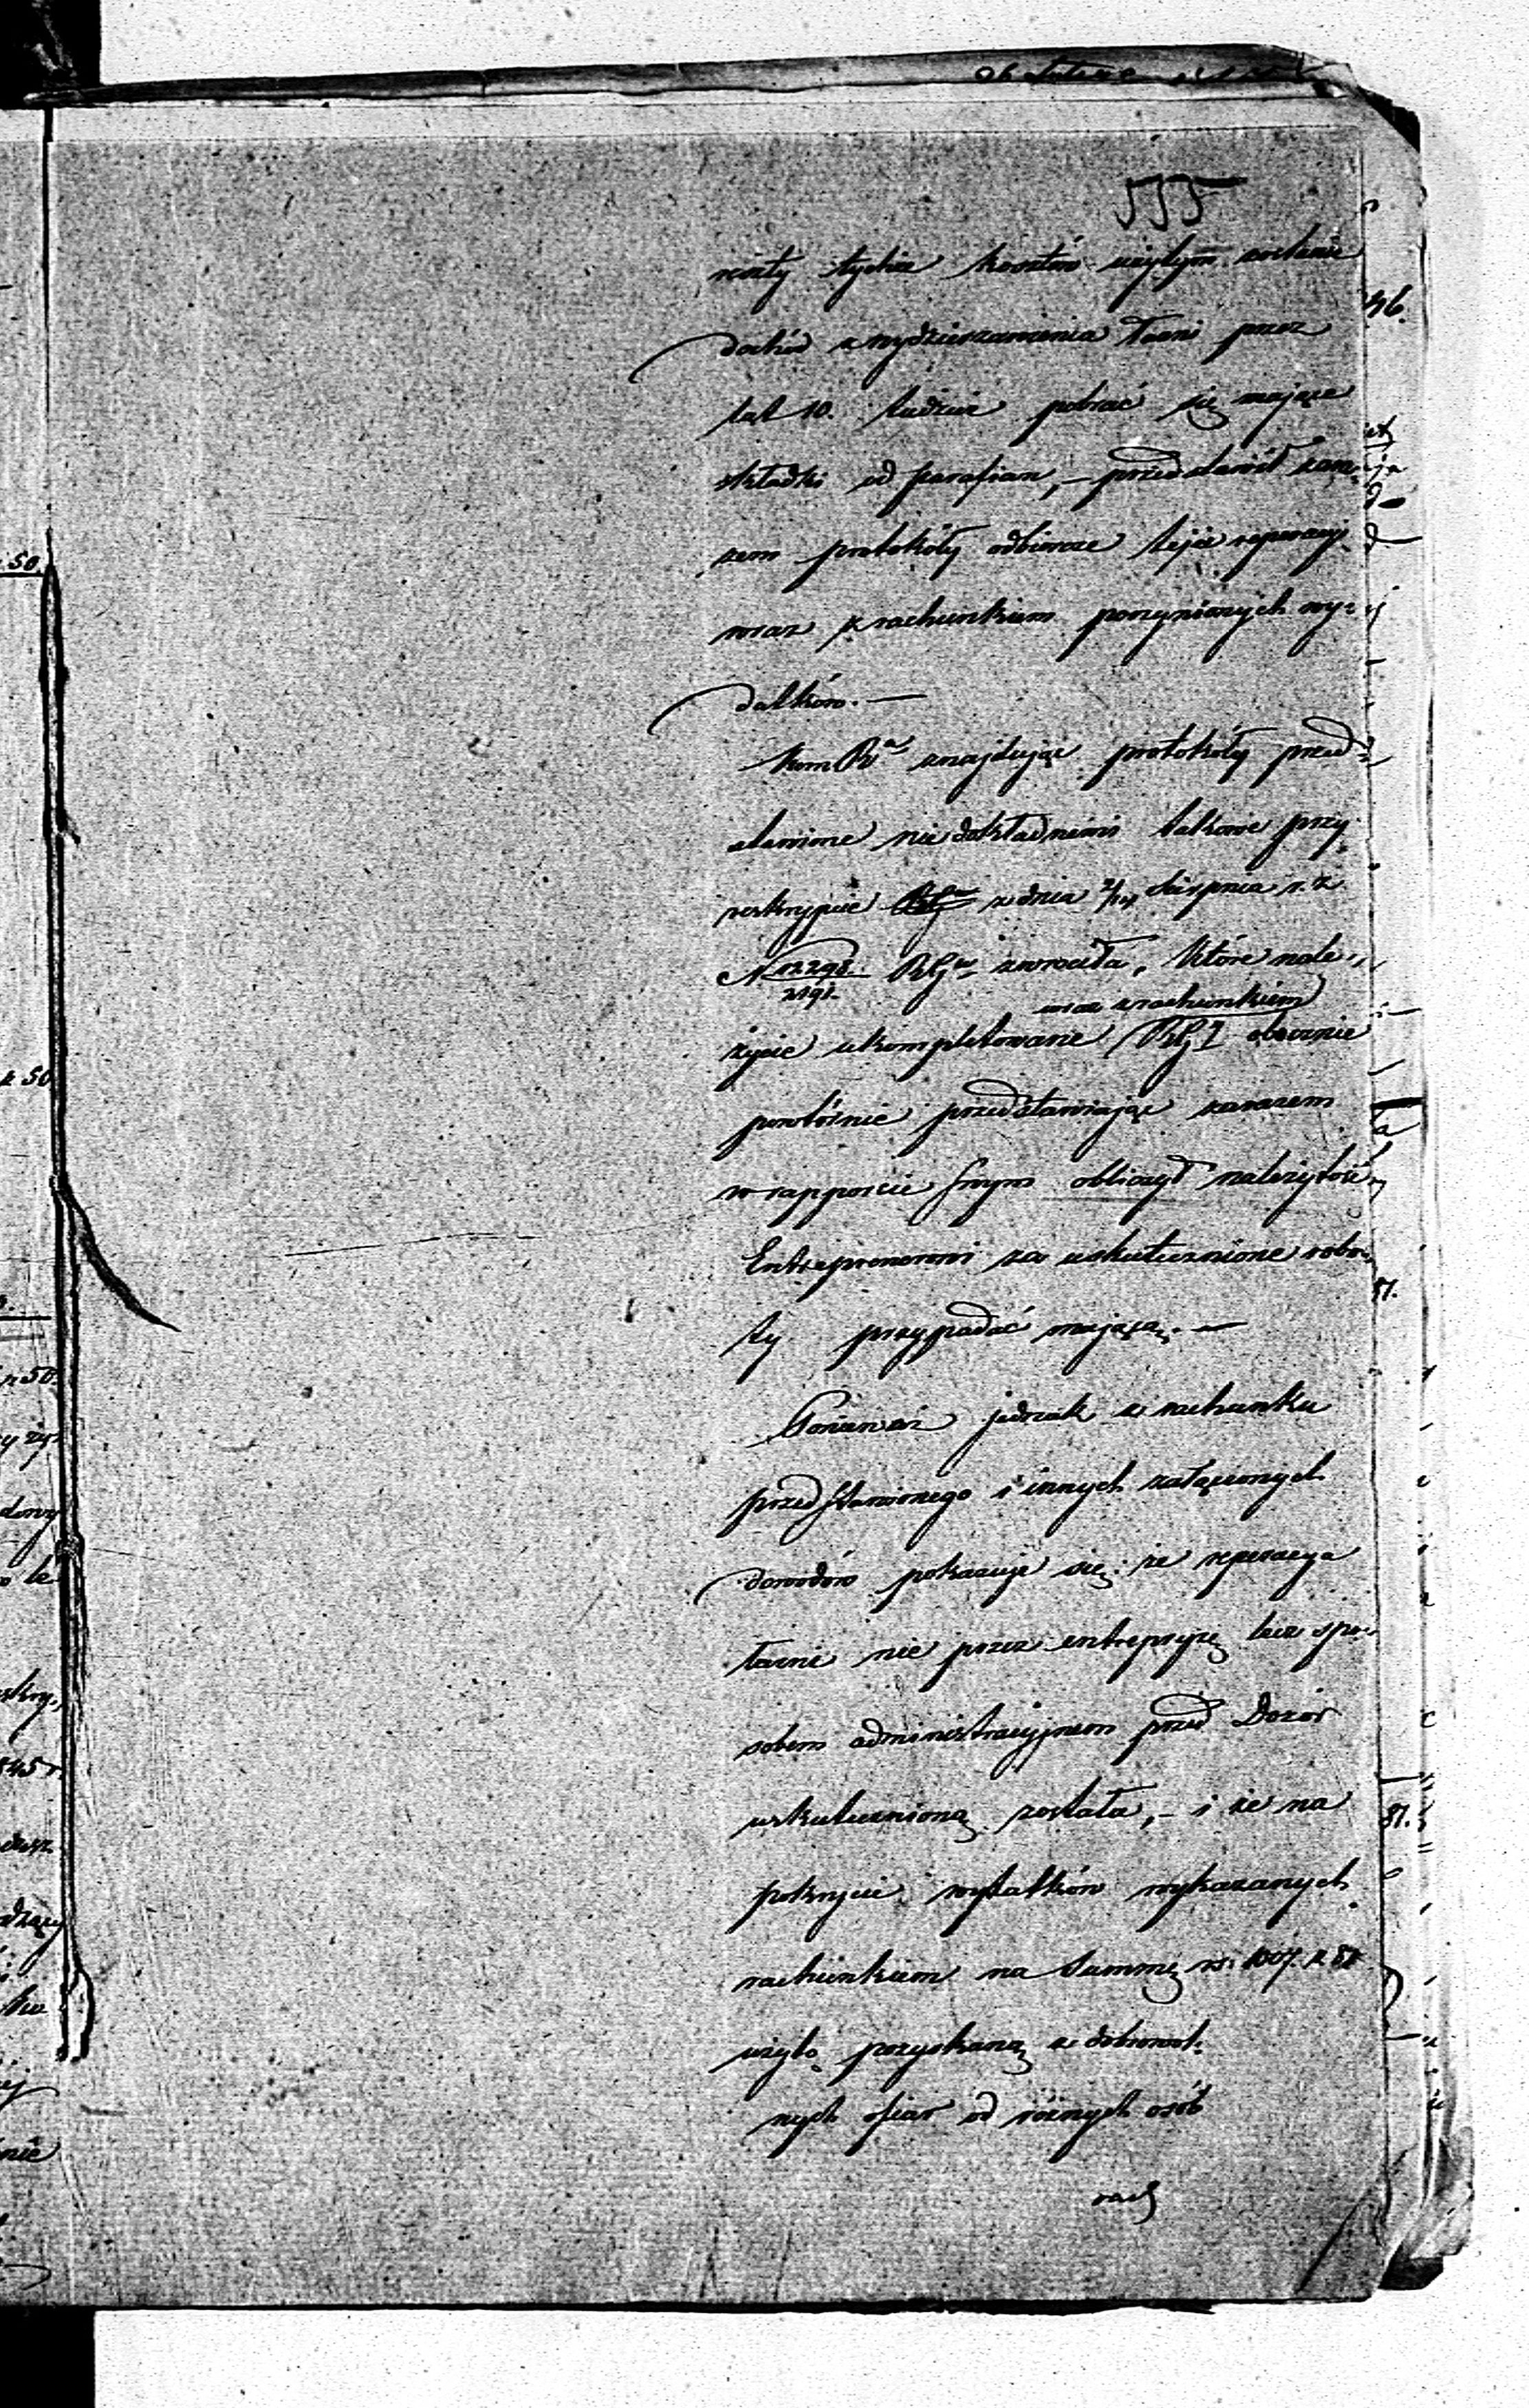 555
reszty tychże kosztów użytym zostanie
dochód z wydzierżawienia Łaźni przez
lat 10. tudzież pobrać się mające
składki od parafian, – przedstawił zara-
zem protokóły odbiorcze tejże reperacyi
wraz z rachunkiem poczynionych wy-
datków. —
Kom Rwa znajdując protokóły przed-
stawione niedokładnemi takowe przy
reskrypcie z dnia 2/14 Sierpnia r. z.
N 12298/2191 zwróciła, które nale-
wraz z rachunkiem
życie ukompletowane obecnie
powtórnie przedstawiając zarazem
w rapporcie swym obliczył należytość
Entreprenerowi za uskutecznione robo-
ty przypadać mającą. —
Ponieważ jednak z rachunku
przedstawionego i innych załączonych
dowodów pokazuje się: że reperacya
łaźni nie przez entrepryzę lecz spo-
sobem administracyjnem przez Dozór
uskutecznioną została, – i że na
pokrycie wydatków wykazanych
rachunkiem na Summę rs. 1007. k 87
użytą pozyskaną z dobrowol-
nych ofiar od różnych osób